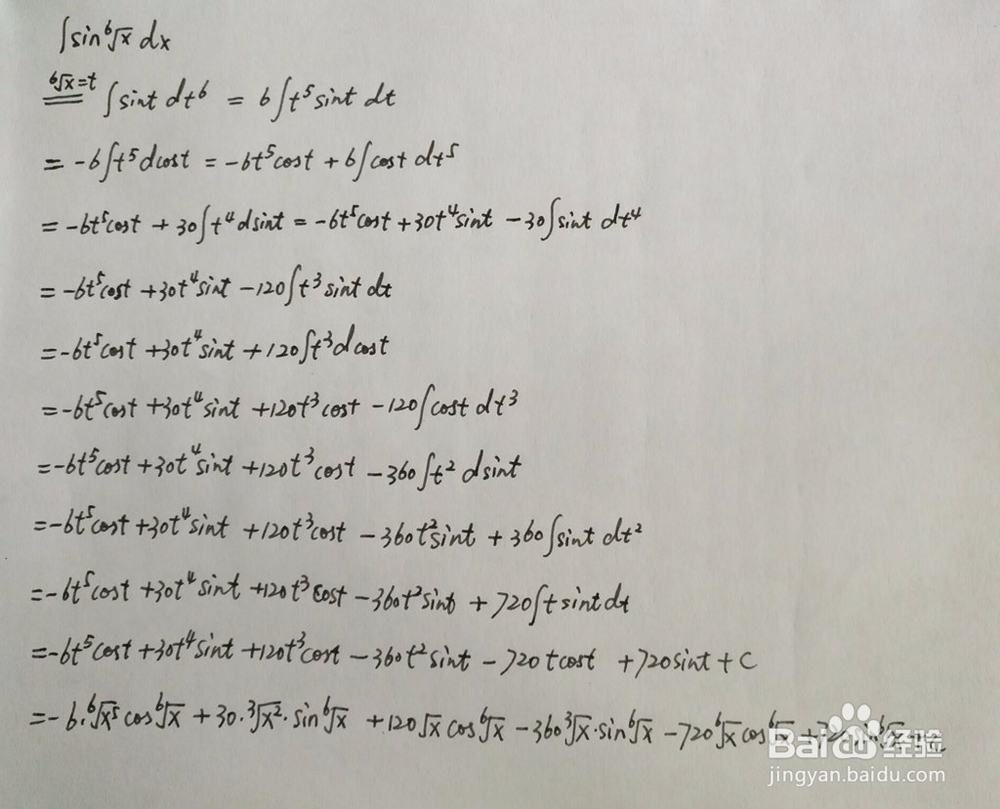 ∫sin⁶√x dx
⁶√x=t ∫sint dt⁶ = 6∫t⁵sint dt
= -6∫t⁵dcost = -6t⁵cost + 6∫cost dt⁵
= -6t⁵cost + 30∫t⁴dsint = -6t⁵cost + 30t⁴sint - 30∫sint dt⁴
= -6t⁵cost + 30t⁴sint - 120∫t³sint dt
= -6t⁵cost + 30t⁴sint + 120∫t³dcost
= -6t⁵cost + 30t⁴sint + 120t³cost - 120∫cost dt³
= -6t⁵cost + 30t⁴sint + 120t³cost - 360∫t² dsint
= -6t⁵cost + 30t⁴sint + 120t³cost - 360t²sint + 360∫sint dt²
= -6t⁵cost + 30t⁴sint + 120t³cost - 360t²sint + 720∫tsintdt
= -6t⁵cost + 30t⁴sint + 120t³cost - 360t²sint - 720tcost + 720sint + C
= -6·⁶√x⁵ cos⁶√x + 30·³√x²·sin⁶√x + 120√x cos⁶√x - 360³√x·sin⁶√x - 720⁶√x cos⁶√x
Baidu 经验
jingyan.baidu.com